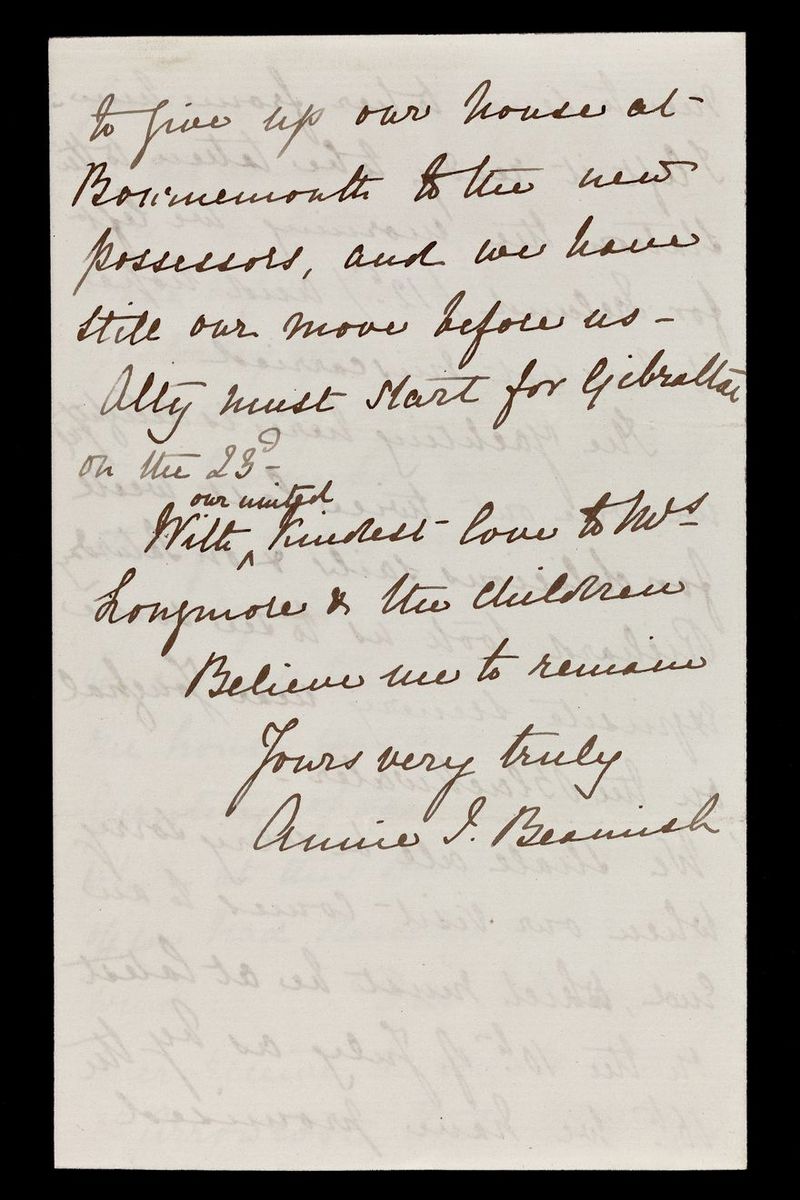 to give up our house at
Bournemouth to the new
possessors, and we have
still our move before us -
Alty must start for Gibraltar
on the 23d -
our united
With ^ Kindest love to Mrs
Longmore & the children
Believe me to remain
Yours very truly
Annie I. Beamish